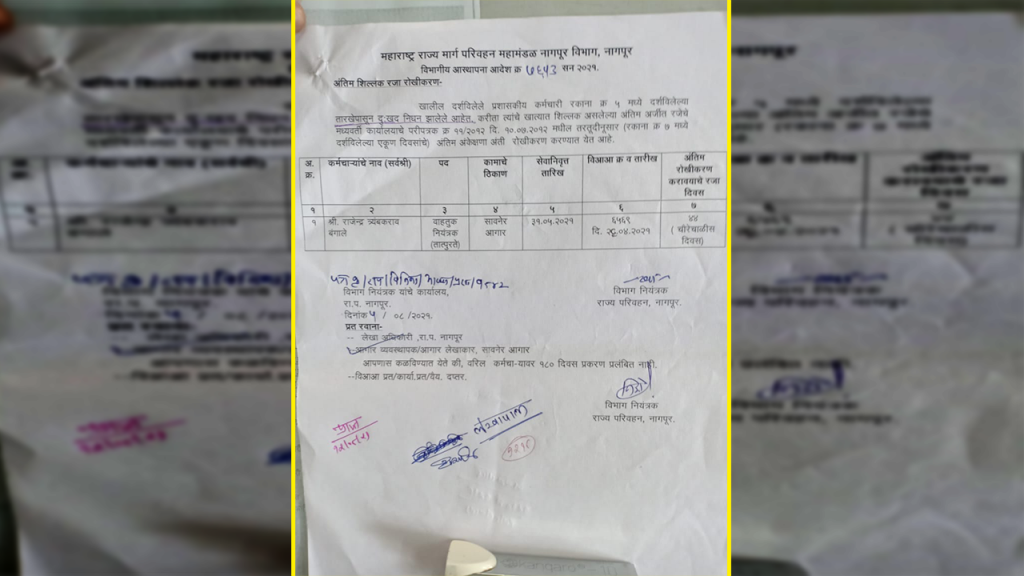 महाराष्ट्र राज्य मार्ग परिवहन महामंडळ नागपूर विभाग, नागपूर
विभागीय आस्थापना आदेश क्र ७६५३ सन २०२१.
अंतिम शिल्लक रजा रोखीकरण-
खालील दर्शविलेले प्रशासकीय कर्मचारी रकाना क्र ५ मध्ये दर्शविलेल्या
तारखेपासून दुःखद निधन झालेले आहेत. करीता त्यांचे खात्यात शिल्लक असलेल्या अंतिम अर्जीत रजेचे
मध्यवर्ती कार्यालयाचे परीपत्रक क्र ११/२०१२ दि. १०.०७.२०१२ मधील तरतूदीनूसार (रकाना क्र ७ मध्ये
दर्शविलेल्या एकूण दिवसांचे) अंतिम अंकेक्षणा अंती रोखीकरण करण्यात येत आहे.
अ. क्र. कर्मचाऱ्यांचे नाव (सर्वश्री) पद कामाचे ठिकाण सेवानिवृत्त तारिख विआआ क्र व तारीख अंतिम रोखीकरण करावयाचे रजा दिवस
१ २ ३ ४ ५ ६ ७
१ श्री. राजेन्द्र त्र्यंबकराव बंगाले वाहतुक नियंत्रक (तात्पुरते) सावनेर आगार ३१.०५.२०२१ ६५६९ दि. .०४.२०२१ ४४ ( चोरेचाळीस दिवस)
विभाग नियंत्रक यांचे कार्यालय,
रा.प. नागपूर.
दिनांक ५/ ०८/२०२१.
विभाग नियंत्रक
राज्य परिवहन, नागपूर.
प्रत रवाना-
-- लेखा अधिकारी ,रा.प. नागपूर
आगार व्यवस्थापक/आगार लेखाकार, सावनेर आगार
आपणास कळविण्यात येते की, वरिल कर्मचा-यावर १८० दिवस प्रकरण प्रलंबित नाही.
--विआआ प्रत/कार्या.प्रत/वैय. दप्तर.
विभाग नियंत्रक
राज्य परिवहन, नागपूर.
लेखापाल